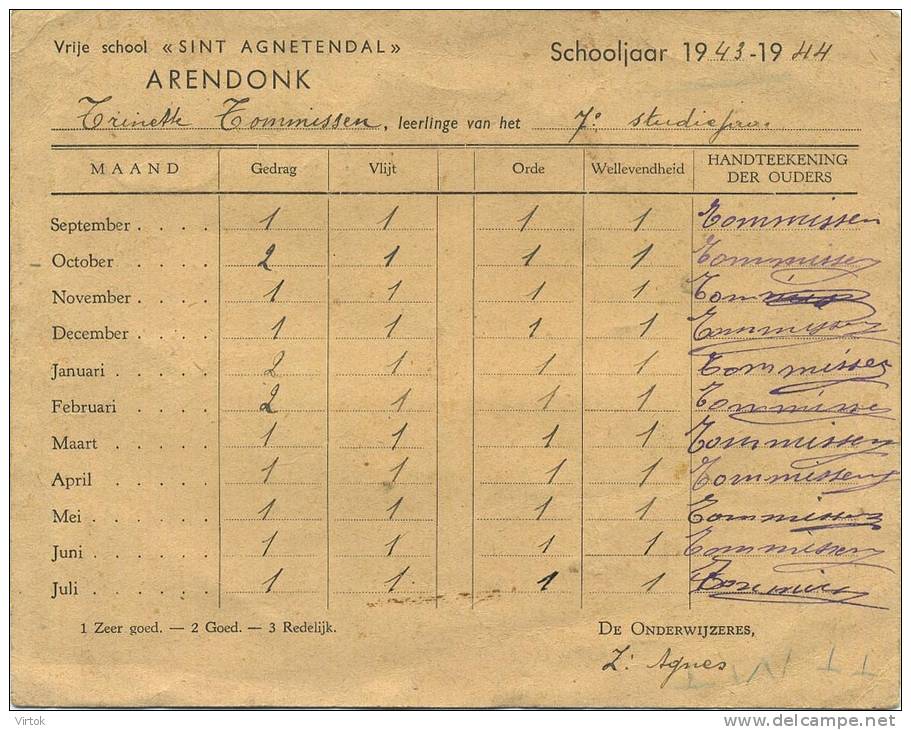 Vrije school «SINT AGNETENDAL» Schooljaar 1943-1944
ARENDONK
Trinette Tommissen, leerlinge van het 7e studiejaar
MAAND Gedrag Vlijt Orde Wellevendheid HANDTEEKENING DER OUDERS
September . . . . 1 1 1 1 Tommissen
October . . . . 2 1 1 1 Tommissen
November . . . . 1 1 1 1 Tommissen
December . . . . 1 1 1 1 Tommissen
Januari . . . . . 2 1 1 1 Tommissen
Februari . . . . 2 1 1 1 Tommissen
Maart . . . . . 1 1 1 1 Tommissen
April . . . . . 1 1 1 1 Tommissen
Mei . . . . . . 1 1 1 1 Tommissen
Juni . . . . . . 1 1 1 1 Tommissen
Juli . . . . . . 1 1 1 1 Tommissen
1 Zeer goed. — 2 Goed. — 3 Redelijk. DE ONDERWIJZERES,
Zr Agnes
Virtok
delcampe.net